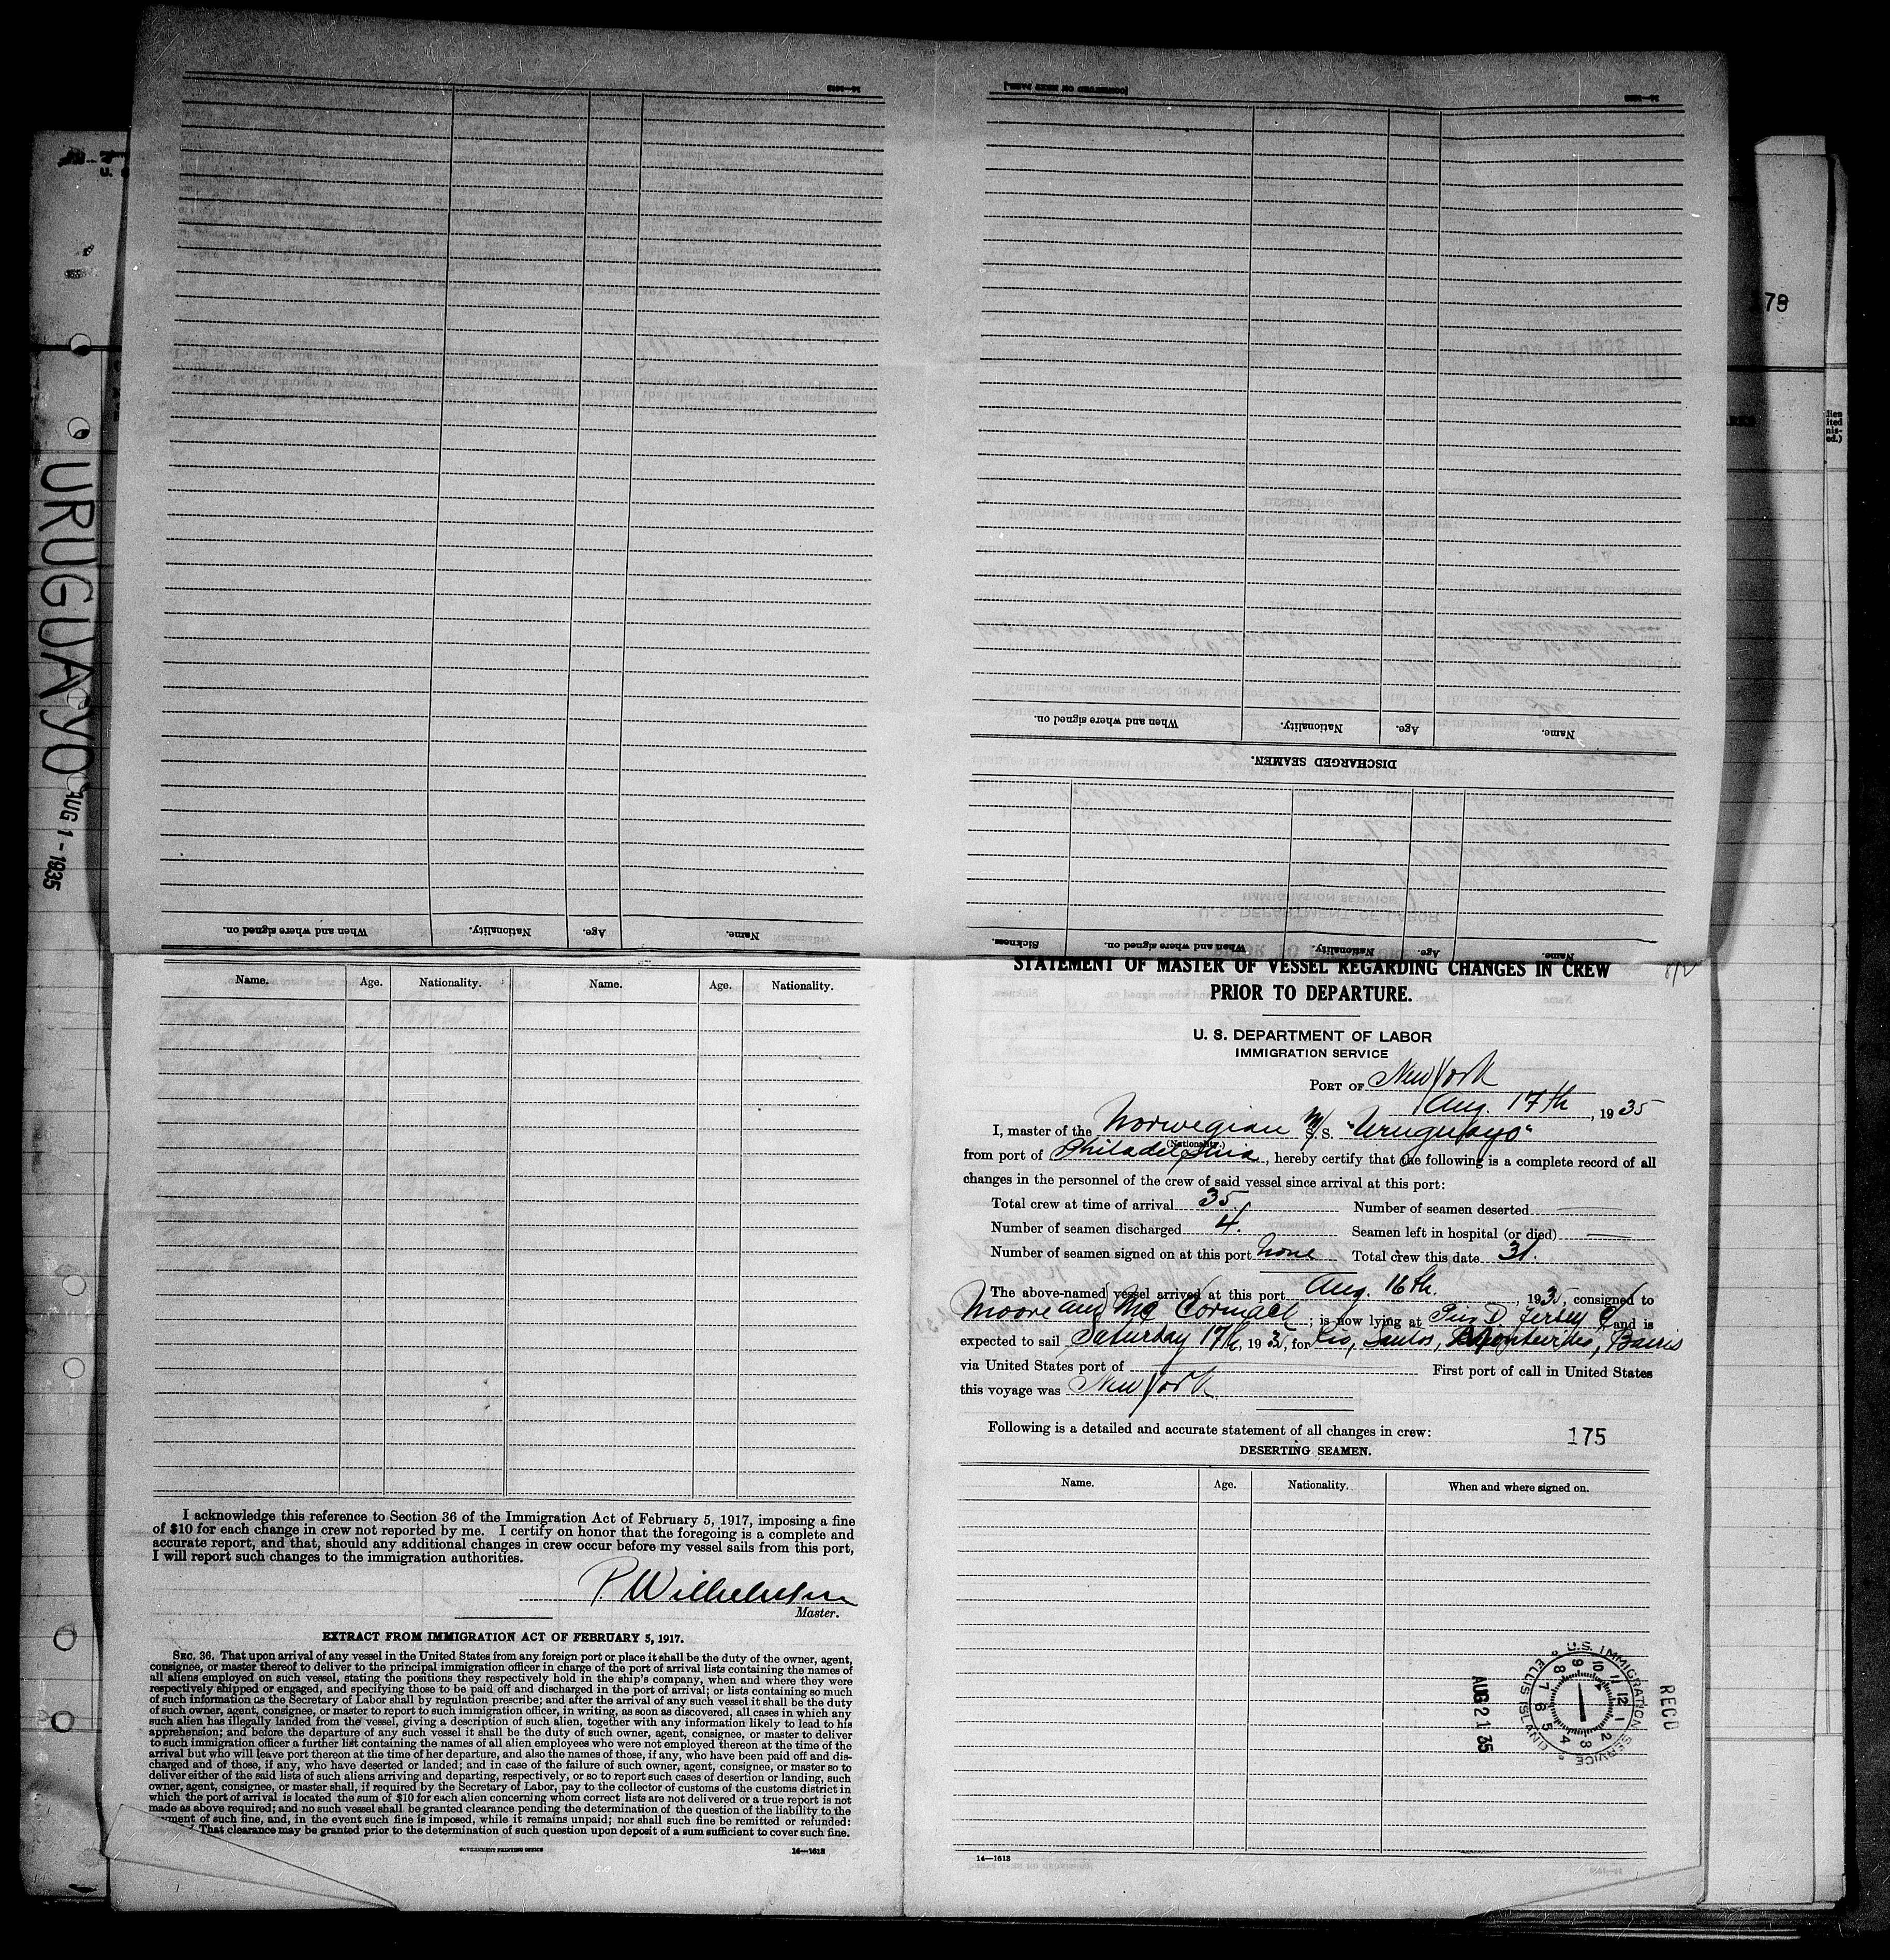 14—1613
[CONTINUED ON NEXT PAGE.]
14—1613
78
URUGUAYO
AUG 1 - 1935
When and where signed on.
Nationality.
Age.
Name.
When and where signed on.
Nationality.
Age.
Name.
DISCHARGED SEAMEN.
Sickness.
When and where signed on.
Nationality.
Age.
Name.
Name. Age. Nationality. Name. Age. Nationality.
I acknowledge this reference to Section 36 of the Immigration Act of February 5, 1917, imposing a fine
of $10 for each change in crew not reported by me. I certify on honor that the foregoing is a complete and
accurate report, and that, should any additional changes in crew occur before my vessel sails from this port,
I will report such changes to the immigration authorities.
P Wilhelmsen
Master.
EXTRACT FROM IMMIGRATION ACT OF FEBRUARY 5, 1917.
SEC. 36. That upon arrival of any vessel in the United States from any foreign port or place it shall be the duty of the owner, agent,
consignee, or master thereof to deliver to the principal immigration officer in charge of the port of arrival lists containing the names of
all aliens employed on such vessel, stating the positions they respectively hold in the ship's company, when and where they were
respectively shipped or engaged, and specifying those to be paid off and discharged in the port of arrival; or lists containing so much
of such information as the Secretary of Labor shall by regulation prescribe; and after the arrival of any such vessel it shall be the duty
of such owner, agent, consignee, or master to report to such immigration officer, in writing, as soon as discovered, all cases in which any
such alien has illegally landed from the vessel, giving a description of such alien, together with any information likely to lead to his
apprehension; and before the departure of any such vessel it shall be the duty of such owner, agent, consignee, or master to deliver
to such immigration officer a further list containing the names of all alien employees who were not employed thereon at the time of the
arrival but who will leave port thereon at the time of her departure, and also the names of those, if any, who have been paid off and dis-
charged and of those, if any, who have deserted or landed; and in case of the failure of such owner, agent, consignee, or master so to
deliver either of the said lists of such aliens arriving and departing, respectively, or so to report such cases of desertion or landing, such
owner, agent, consignee, or master shall, if required by the Secretary of Labor, pay to the collector of customs of the customs district in
which the port of arrival is located the sum of $10 for each alien concerning whom correct lists are not delivered or a true report is not
made as above required; and no such vessel shall be granted clearance pending the determination of the question of the liability to the
ment of such fine, and, in the event such fine is imposed, while it remains unpaid; nor shall such fine be remitted or refunded:
That clearance may be granted prior to the determination of such question upon deposit of a sum sufficient to cover such fine.
GOVERNMENT PRINTING OFFICE
14—1613
STATEMENT OF MASTER OF VESSEL REGARDING CHANGES IN CREW
PRIOR TO DEPARTURE.
U. S. DEPARTMENT OF LABOR
IMMIGRATION SERVICE
PORT OF New York
Aug. 17th, 1935
I, master of the Norwegian M/S. S. "Uruguayo"
(Nationality.)
from port of Philadelphia, hereby certify that the following is a complete record of all
changes in the personnel of the crew of said vessel since arrival at this port:
Total crew at time of arrival 35. Number of seamen deserted —
Number of seamen discharged 4. Seamen left in hospital (or died) —
Number of seamen signed on at this port None Total crew this date 31.
The above-named vessel arrived at this port Aug. 16th., 1935, consigned to
Moore and Mc Cormack; is now lying at Pier D. Jersey C and is
expected to sail Saturday 17th, 1935, for Rio, Santos, Montevideo, Baires
via United States port of — First port of call in United States
this voyage was New York
Following is a detailed and accurate statement of all changes in crew:
175
DESERTING SEAMEN.
Name. Age. Nationality. When and where signed on.
RECD
U.S. IMMIGRATION SERVICE ELLIS ISLAND
AUG 21 35
14—1613